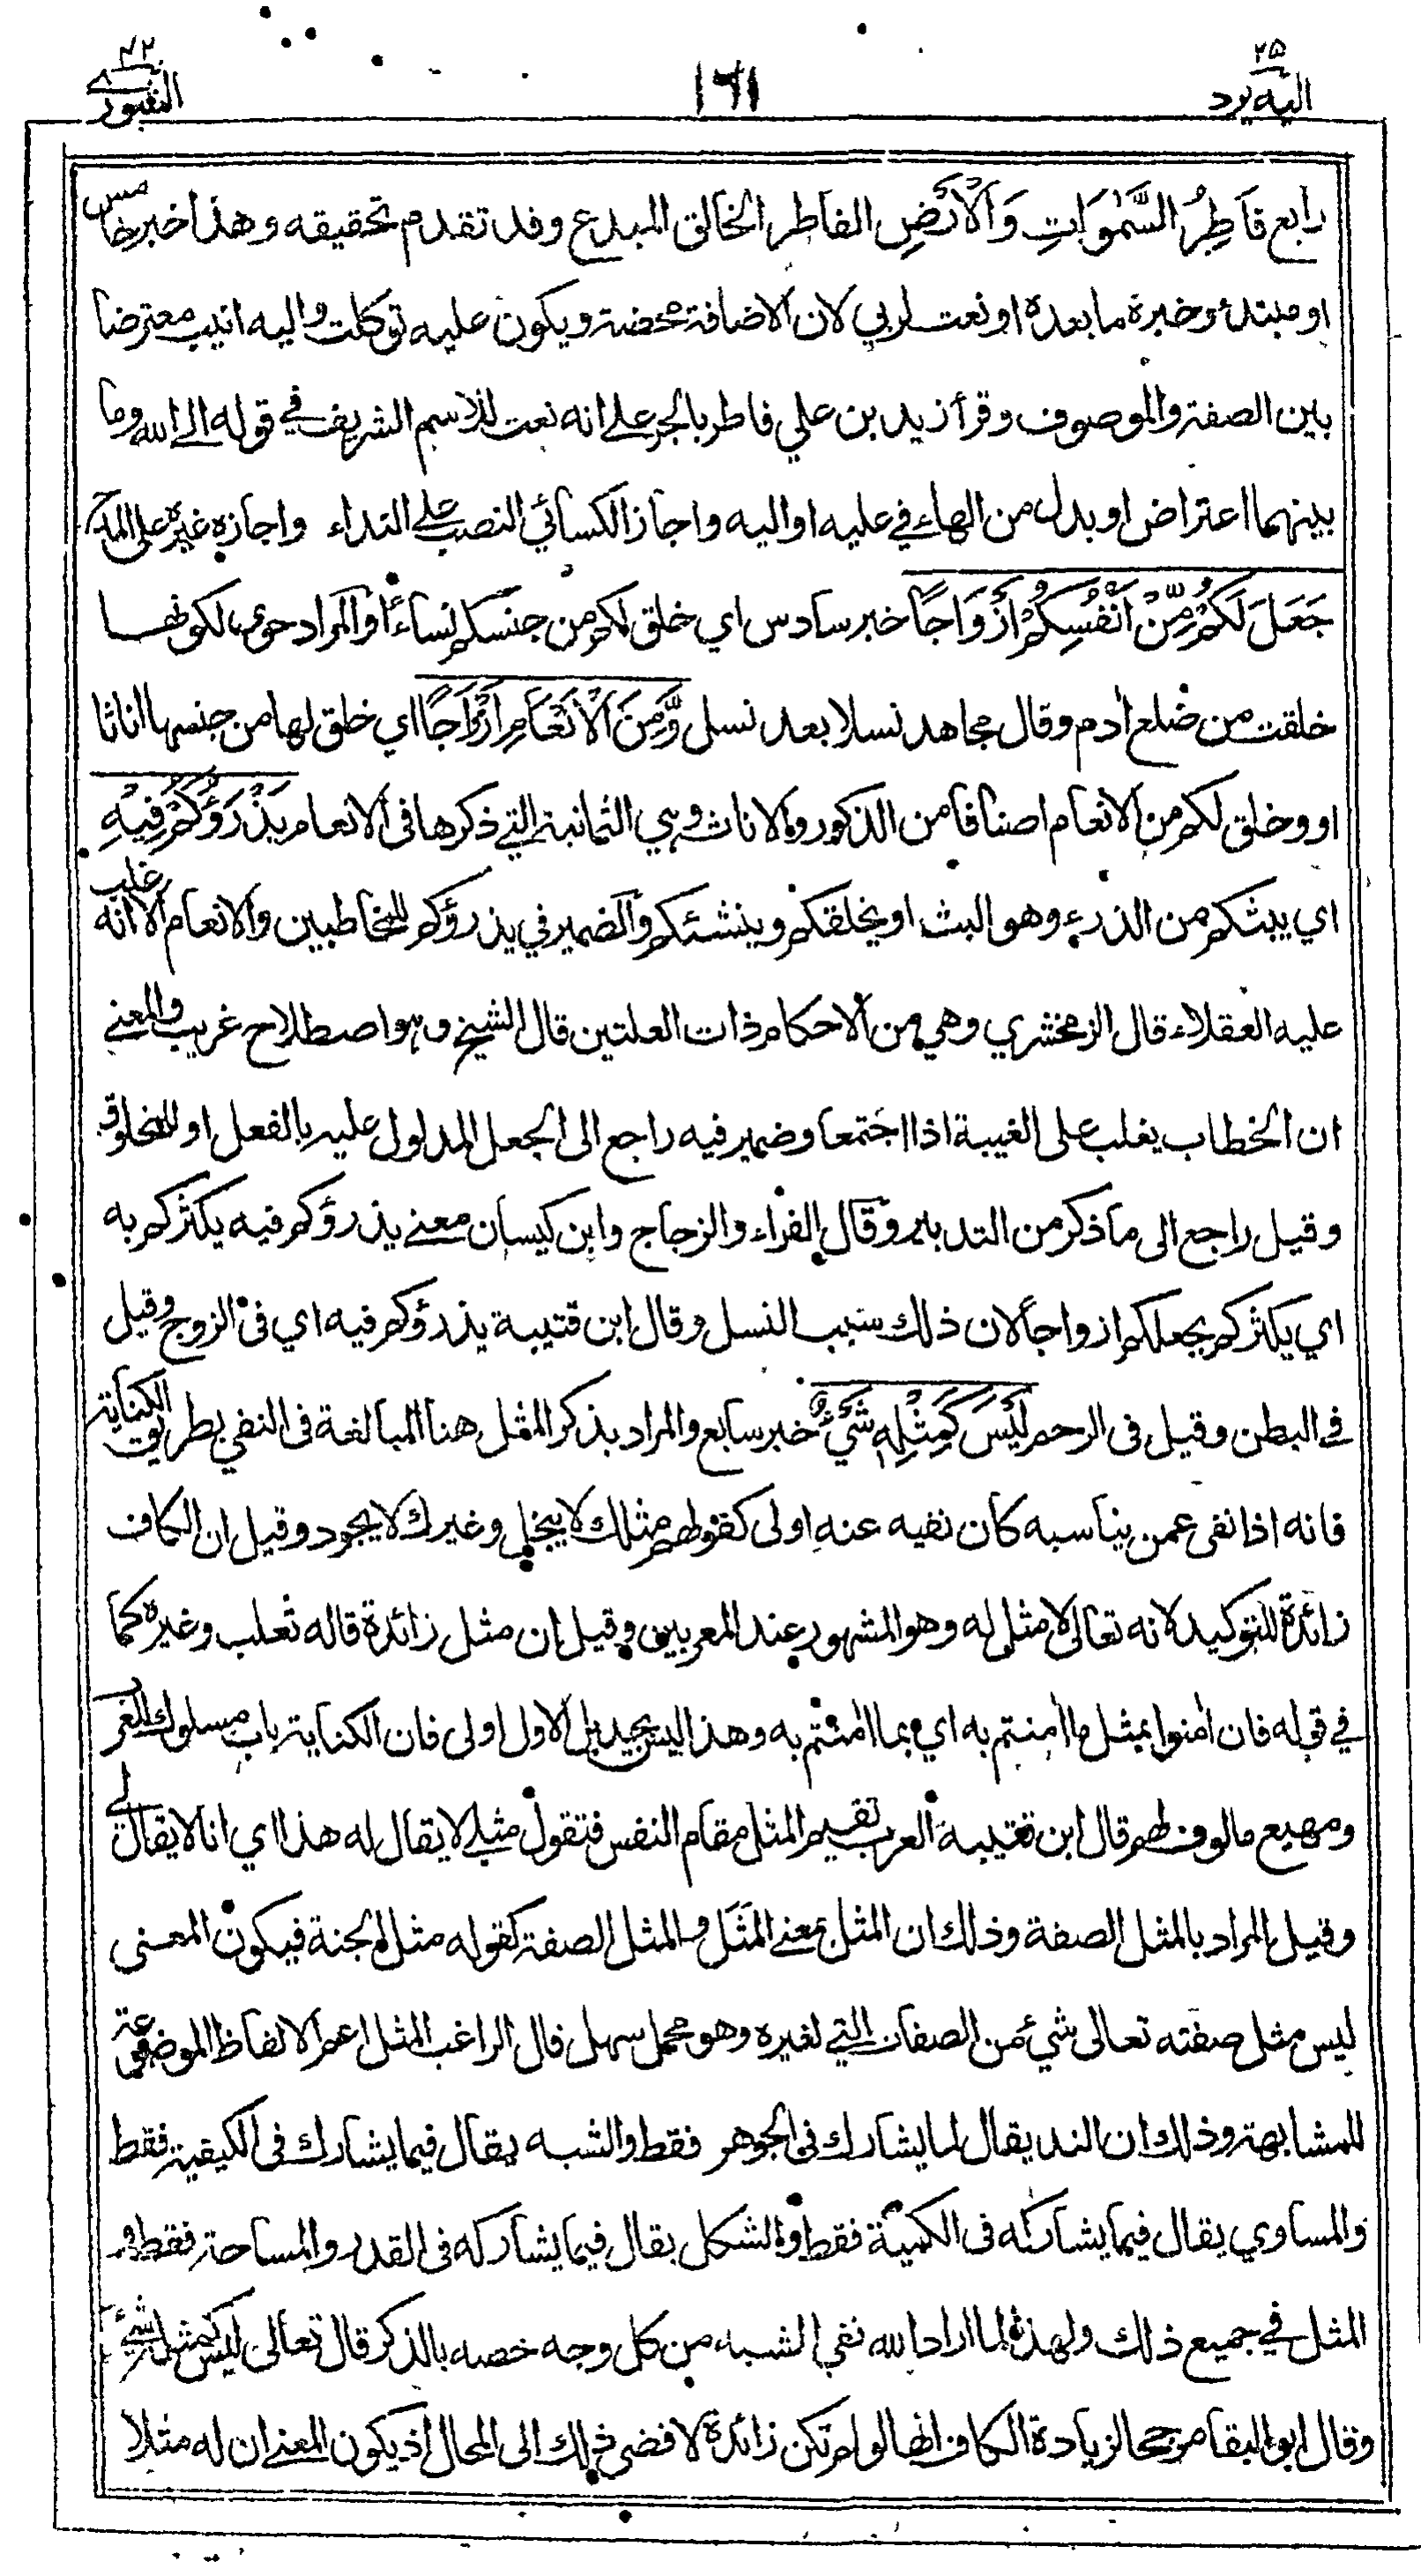 ٢٥
اليه يرد
١٦١
٤٢
الشورى
رابع فَاطِرُ السَّمٰوَاتِ وَالْاَرْضِ الفاطر الخالق المبدع وقد تقدم تحقيقه وهذا خبر خامس
او مبتدء وخبره ما بعده او نعت لربي لان الاضافة محضة ويكون عليه توكلت واليه انيب معترضا
بين الصفة والموصوف وقرأ زيد بن علي فاطر بالجر على انه نعت للاسم الشريف في قوله الى الله وما
بينهما اعتراض او بدل من الهاء في عليه او اليه واجاز الكسائي النصب على النداء واجازه غيره على المدح
جَعَلَ لَكُمْ مِّنْ اَنْفُسِكُمْ اَزْوَاجًا خبر سادس اي خلق لكم من جنسكم نساءً او المراد حوى لكونها
خلقت من ضلع اٰدم وقال مجاهد نسلا بعد نسل وَّمِنَ الْاَنْعَامِ اَزْوَاجًا اي خلق لها من جنسها اناثا
او وخلق لكم من الانعام اصنافا من الذكور والاناث وهي الثمانية التي ذكرها في الانعام يَذْرَؤُكُمْ فِيْهِ
اي يبثكم من الذرء وهو البث او يخلقكم وينشئكم والضمير في يذرؤكم للمخاطبين والانعام الا انه غلب
عليه العقلاء قال الزمخشري وهي من الاحكام ذات العلتين قال الشيخ وهو اصطلاح غريب والمعنى
ان الخطاب يغلب على الغيبة اذا اجتمعا وضمير فيه راجع الى الجعل المدلول عليه بالفعل او للمخلوق
وقيل راجع الى ما ذكر من التدبير وقال الفراء والزجاج وابن كيسان معنى يذرؤكم فيه يكثركم به
اي يكثركم بجعلكم ازواجا لان ذلك سبب النسل وقال ابن قتيبة يذرؤكم فيه اي في الزوج وقيل
في البطن وقيل في الرحم لَيْسَ كَمِثْلِهٖ شَيْءٌ خبر سابع والمراد بذكر المثل هنا المبالغة في النفي بطريق الكناية
فانه اذا نفى عمن يناسبه كان نفيه عنه اولى كقولهم مثلك لا يبخل وغيرك لا يجود وقيل ان الكاف
زائدة للتوكيد لانه تعالى لا مثل له وهو المشهور عند المعربين وقيل ان مثل زائدة قاله ثعلب وغيره كما
في قوله فان اٰمنوا بمثل ما اٰمنتم به اي بما اٰمنتم به وهذا ليس بجيد بل الاول اولى فان الكناية باب مسلوك للعرب
ومهيع مالوف لهم قال ابن قتيبة العرب تقيم المثل مقام النفس فتقول مثلي لا يقال له هذا اي انا لا يقال لي
وقيل المراد بالمثل الصفة وذلك ان المثل بمعنى المَثَل والمثل الصفة كقوله مثل الجنة فيكون المعنى
ليس مثل صفته تعالى شيء من الصفات التي لغيره وهو محمل سهل قال الراغب المثل اعم الالفاظ الموضوعة
للمشابهة وذلك ان الند يقال لما يشارك في الجوهر فقط والشبه يقال فيما يشارك في الكيفية فقط
والمساوي يقال فيما يشاركه في الكمية فقط والشكل يقال فيما يشاركه في القدر والمساحة فقط و
المثل في جميع ذلك ولهذا لما اراد الله نفي الشبه من كل وجه خصه بالذكر قال تعالى ليس كمثله شيء
وقال ابو البقا مرجحا لزيادة الكاف انها لو لم تكن زائدة لافضى ذلك الى المحال اذ يكون المعنى ان له مثلا